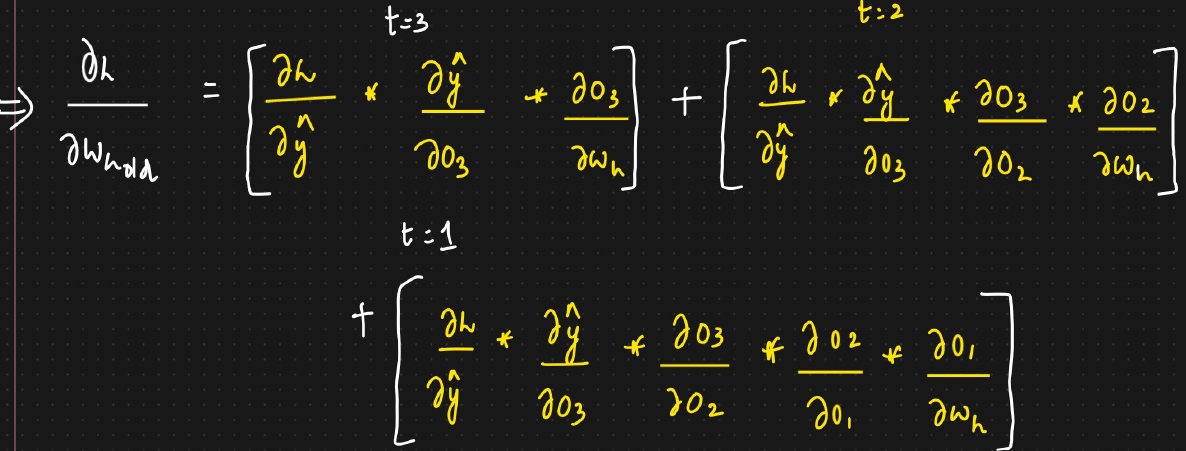 t=3 t=2
⇒ ∂L/∂w_h old = [∂L/∂ŷ * ∂ŷ/∂O₃ * ∂O₃/∂w_h] + [∂L/∂ŷ * ∂ŷ/∂O₃ * ∂O₃/∂O₂ * ∂O₂/∂w_h]
t=1
+ [∂L/∂ŷ * ∂ŷ/∂O₃ * ∂O₃/∂O₂ * ∂O₂/∂O₁ * ∂O₁/∂w_h]